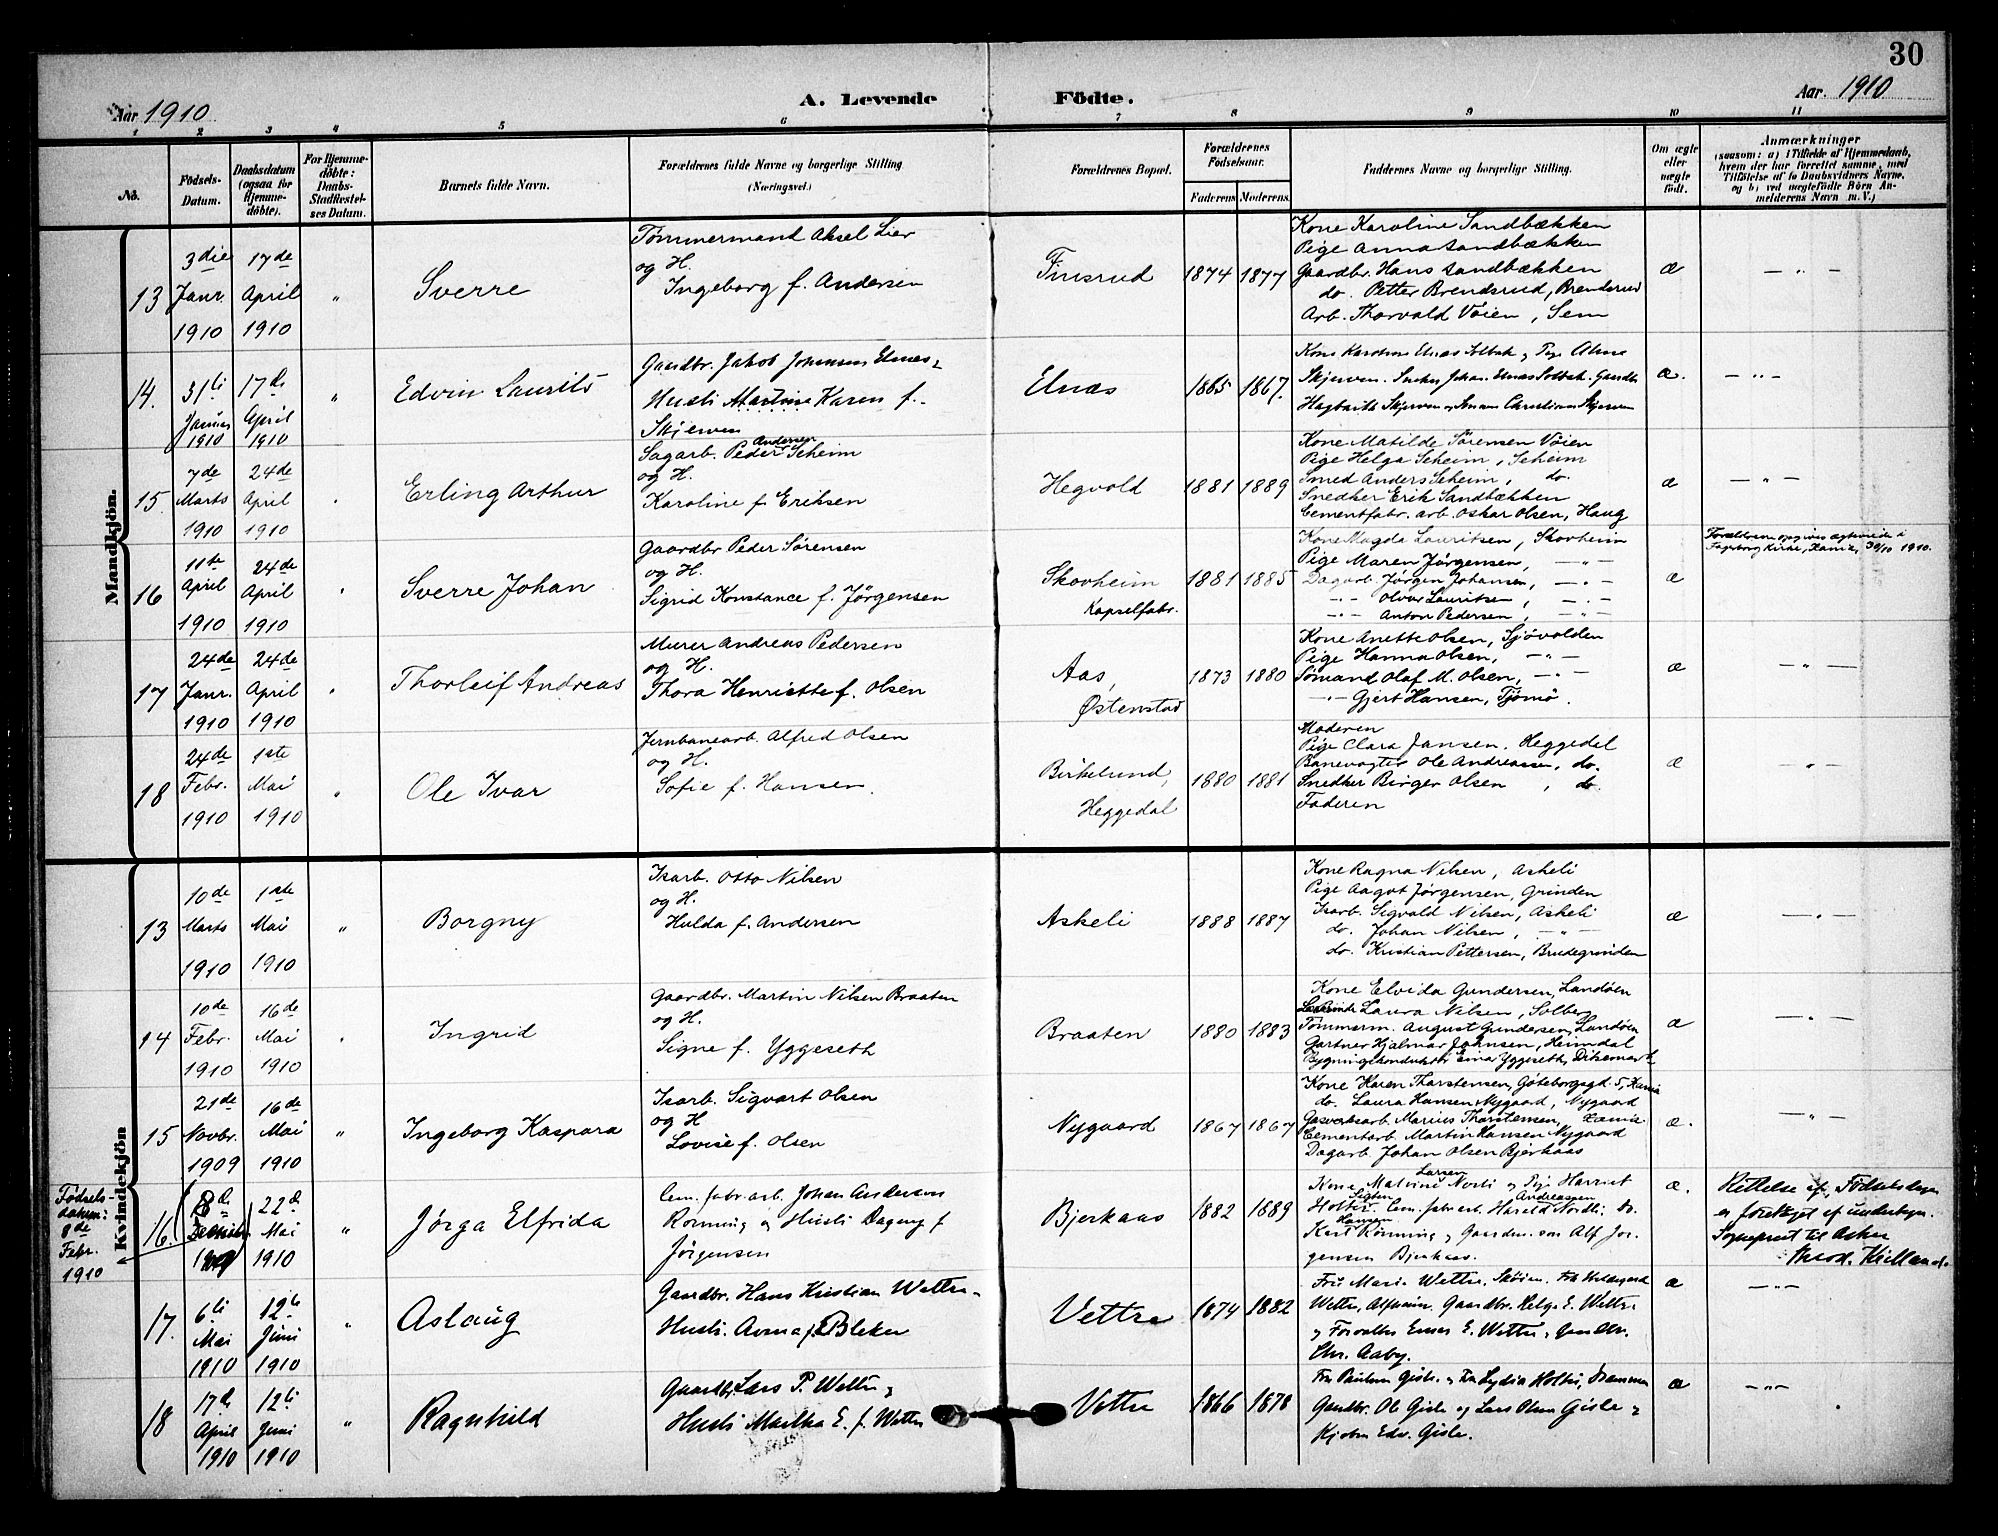 30
Aar 1910
A. Levende
Födte.
Aar. 1910
1 2 3 4 5 6 7 8 9 10 11
No.
Födsels-
Datum.
Daabsdatum
(ogsaa for
Hjemme-
döbte).
For Hjemme-
döbte:
Daabs-
Stadfæstel-
ses Datum.
Barnets fulde Navn.
Forældrenes fulde Navne og borgerlige Stilling
(Næringsvei.)
Forældrenes Bopæl.
Forældrenes
Födselsaar.
Faderens
Moderens
Faddernes Navne og borgerlige Stilling.
Om ægte
eller
uægte
födt.
Anmærkninger
(saasom: a) i Tilfælde af Hjemmedaab,
hvem der har forrettet samme, med
Tilföielse af to Daabsvidners Navne,
og b) ved uægtefödte Börn An-
melderens Navn m. V.)
Mandkjön.
13
3die
Janr.
1910
17de
April
1910
"
Sverre
Tømmermand Aksel Lier
og H.
Ingeborg f. Andersen
Finsrud
1874
1877
Kone Karoline Sandbækken
Pige Anna Sandbækken
Gaardbr. Hans Sandbækken
do. Petter Brendsrud, Brendsrud
Arb. Thorvald Vøien, Sem
æ
— " —
14.
31ti
Januar
1910
17de
April
1910
"
Edvin Laurits
Gaardbr. Jakob Johansen Elnæs
Husti Martine Karen f.
Skjerven
Elnæs
1865
1867.
Skjerven. Johan Elnæs Solbak. Gaardbr
Skjerven Christian Skjerven
æ.
— " —
15
7de
Marts
1910
24de
April
1910
"
Erling Arthur
Andersen
Sagarb. Peder Seheim
og H.
Karoline f. Eriksen
Hegvold
1881
1889
Kone Matilde Sørensen Vøien
Pige Helga Seheim, Seheim
Smed Anders Seheim, do.
Snedker Erik Sandbækken
Cementfabr. arb. Oskar Olsen, Haug
æ
— " —
16
11te
April
1910
24de
April
1910
"
Sverre Johan
Gaardbr Peder Sørensen
og H.
Sigrid Konstance f. Jørgensen
Skovheim
Kapselfabr.
1881
1885
Kone Magda Lauritsen, Skovheim
Pige Maren Jørgensen, — " —
Dagarb. Jørgen Johansen, — " —
— " — Oluar Lauritsen, — " —
— " — Anton Pedersen, — " —
æ
Forældrene opgives ægteviede i
Fagerborg Kirke, Krania, 30/10 1910.
17
24de
Janr.
1910
24de
April
1910
"
Thorleif Andreas
Murer Andreas Pedersen
og H.
Thora Henriette f. Olsen
Aas,
Østenstad
1873
1880
Kone Anette Olsen, Sjøvolden
Pige Hanna Olsen, — " —
Sømand Olaf M. Olsen, — " —
— " — Gjert Hansen, Tjømø.
æ
— " —
18
24de
Febr.
1910
1ste
Mai
1910
"
Ole Ivar
Jernbanearb. Alfred Olsen
og H.
Sofie f. Hansen.
Birkelund,
Heggedal
1880
1881
Moderen
Pige Clara Jansen. Heggedal
Banevogter Ole Andreassen, do.
Snedker Birger Olsen, do.
Faderen
æ
— " —
Kvindekjön
13
10de
Marts
1910
1ste
Mai
1910
"
Borgny
Isarb. Otto Nilsen
og H.
Hulda f. Andersen
Askeli
1888
1887
Kone Ragna Nilsen, Askeli
Pige Aagot Jørgensen, Grinden
Isarb. Sigvald Nilsen, Askeli
do. Johan Nilsen, — " —
do. Kristian Pettersen, Brudegrinden
æ
— " —
14
10de
Febr.
1910
16de
Mai
1910
"
Ingrid
Gaardbr. Martin Nilsen Braaten
og H.
Signe f. Yggeseth
Braaten
1880
1883
Kone Elvida Gundersen, Landøen
Laura Nilsen, Solberg
Tømmerm. August Gundersen, Landøen
Gartner Hjalmar Johnsen, Heimdal
Einar Yggeseth, Dikemark
æ
— " —
15
21de
Novbr.
1909
16de
Mai
1910
"
Ingeborg Kaspara
Isarb. Sigvart Olsen
og H
Lovise f. Olsen
Nygaard
1867
1867
Kone Karen Thorstensen, Göteborgsgd. 5, Krania
do. Laura Hansen Nygaard, Nygaard
Gasverksarb. Marius Thorstensen, Krania
Cementarb. Martin Hansen Nygaard
Dagarb. Johan Olsen Bjerkaas
æ.
— " —
Fødsels-
datum:
8de
Febr.
1910
16.
8de
1909
22de
Mai
1910
"
Jørga Elfrida
Cem. fabr. arb. Johan Anderson
Rønning og Husti Dagny f.
Jørgensen
Bjerkaas
1882
1889
Larsen
Kone Malvine Nordli og Pige Harriet
Andreassen
Holter. Cem. fabr arb. Harald Nordli, do.
Hansen
Karl Rønning og Gaardm. søn Alf Jør-
gensen Bjerkaas.
æ.
Rettelse af Fødselsdagen
er foretaget af undertegn.
Sogneprest til Asker
Theod. Kielland.
17.
6ti
Mai
1910
12ti
Juni
1910
"
Aslaug
Gaardbr. Hans Kristian Wettre
Husti. Anna f. Bleker
Vettre
1874
1882
Fru Marie Wettre, Skøien.
Wettre, Gaardbr. Helge E. Wettre
og Forvalter Einar E. Wettre,
Chr. Aaby.
æ
— " —
18
17de
April
1910
12ti
Juni
1910
"
Ragnhild
Gaardbr. Lars P. Wettre og
Husti Martha E. f. Wettre
Vettre
1866
1878
Fru Gisle og Fru Lydia Holter, Drammen
Gaardbr. Ole Gisle og Lars Olsen Gisle og
Kjøbm. Edv. Gisle.
æ
— " —